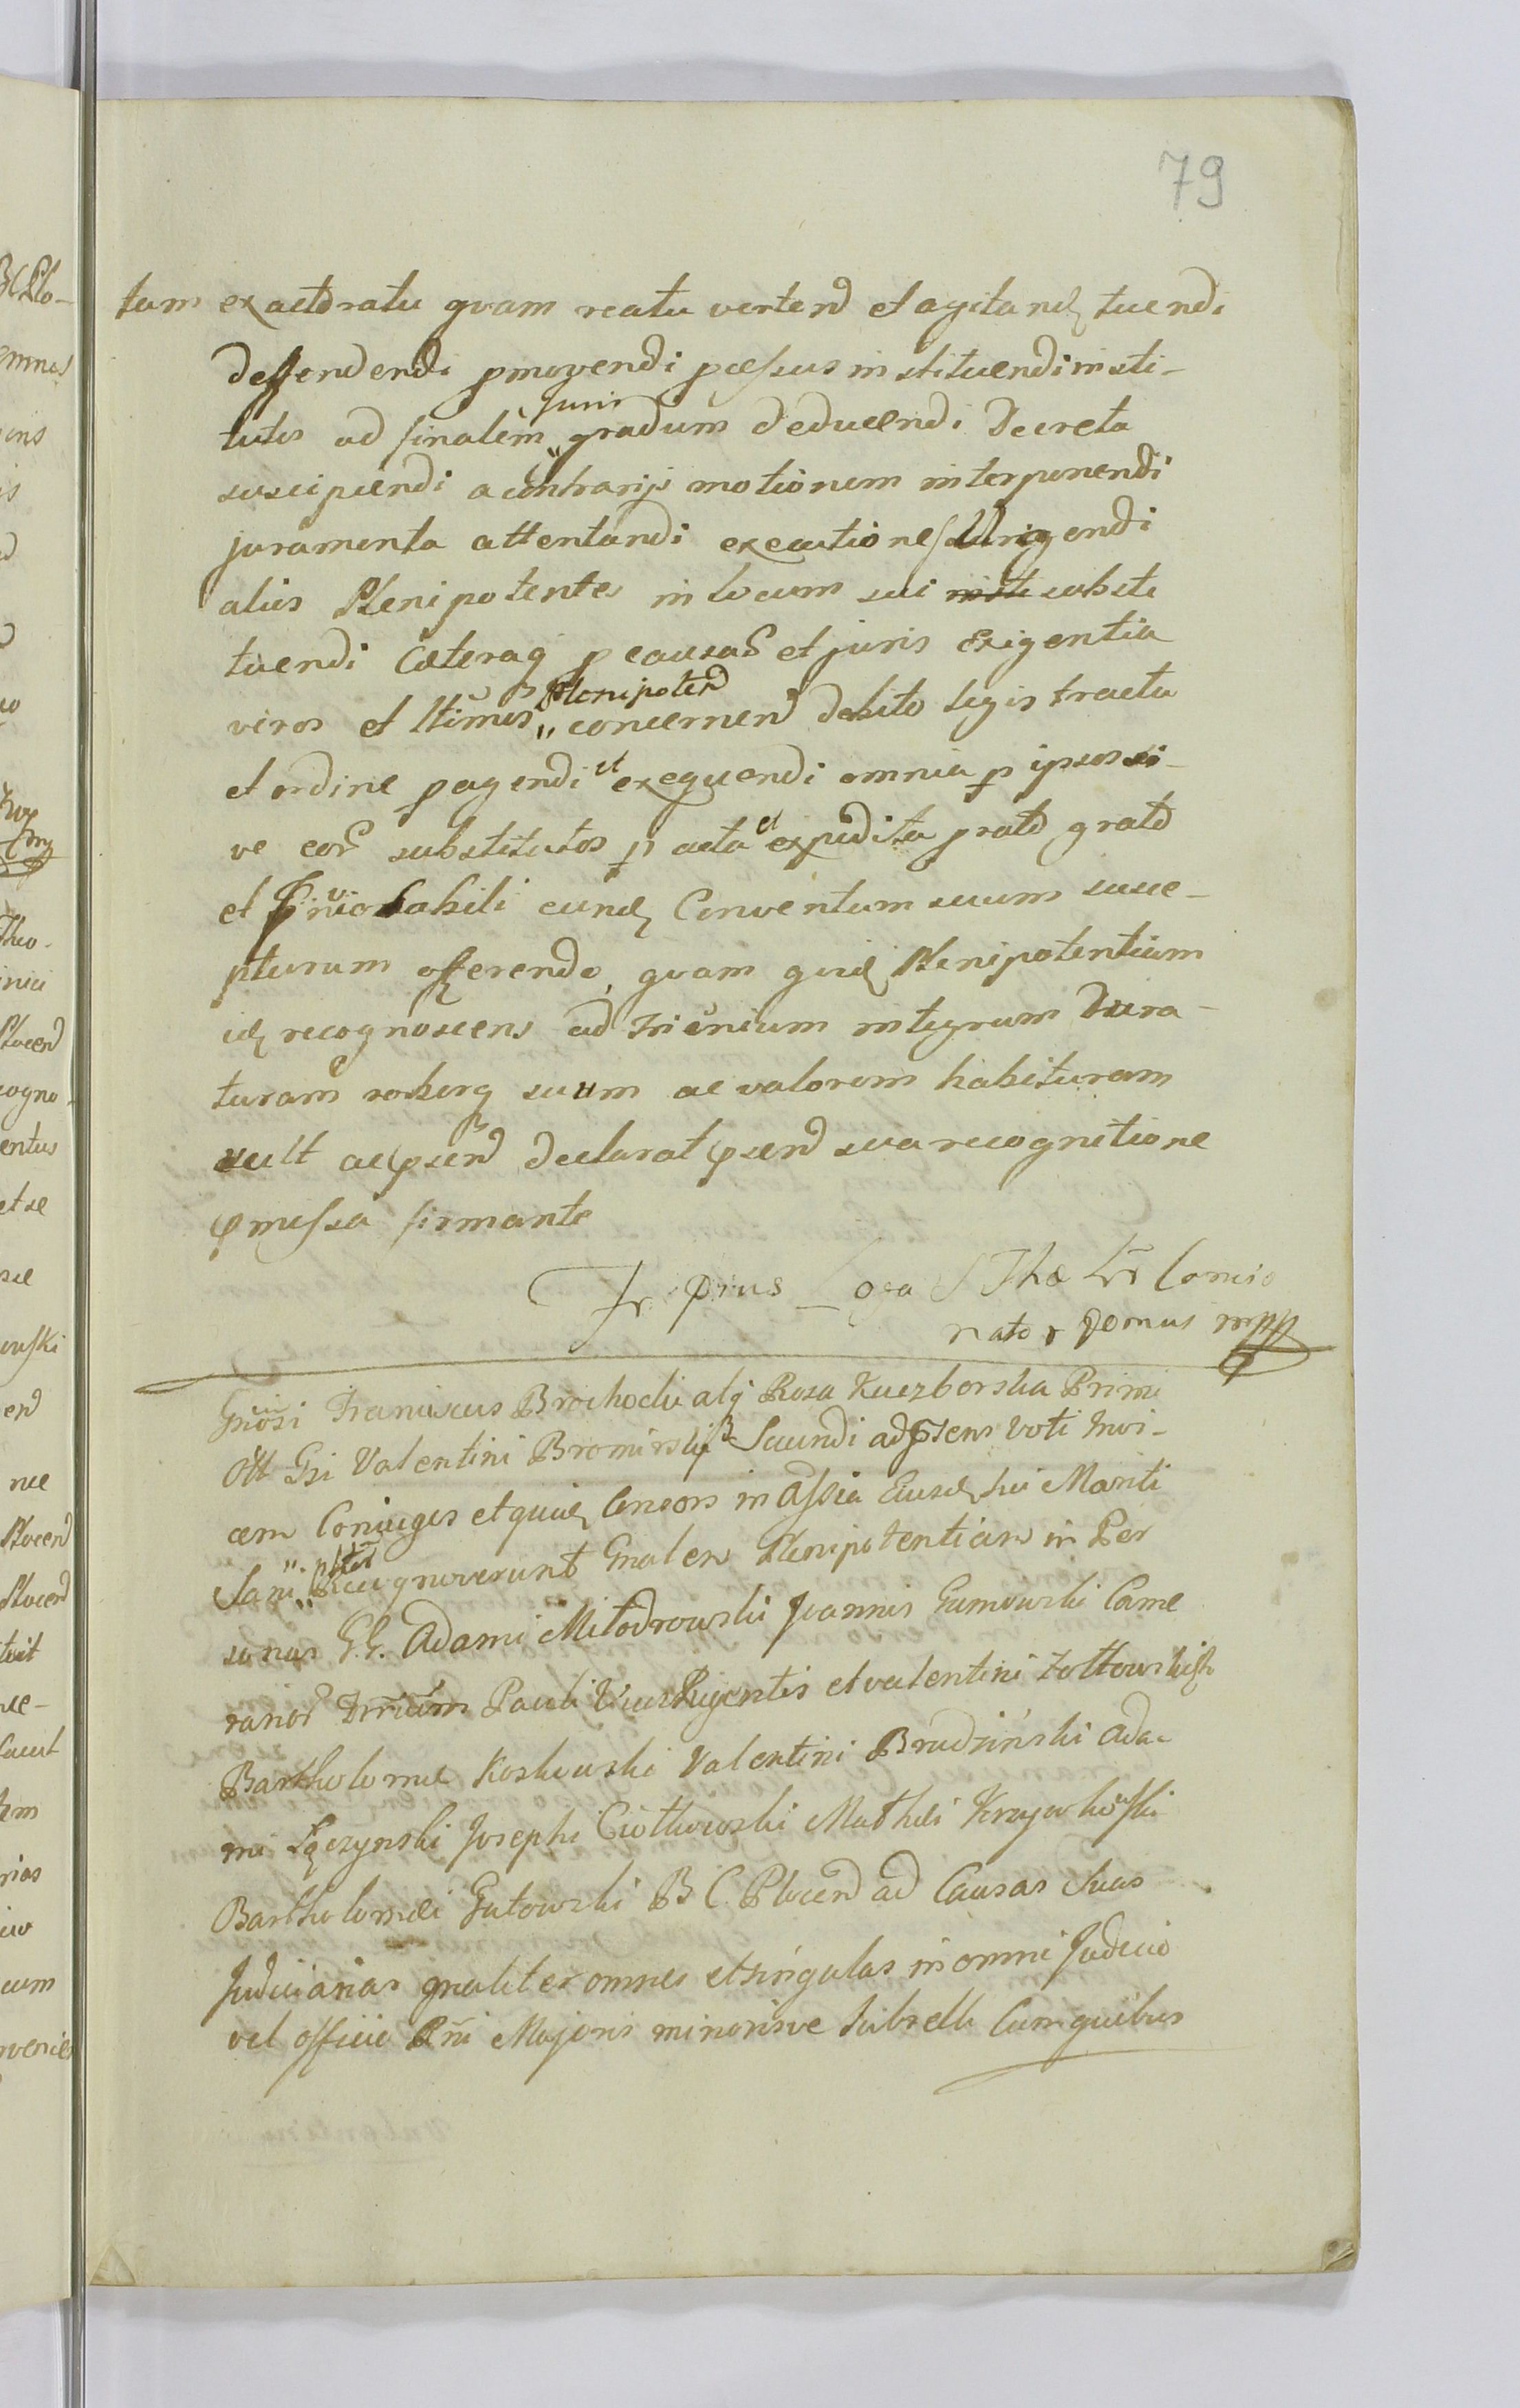 79
tam ex actoratu quam reatu vertend et agitand tuendi
deffendendi pmovendi pcessus instituendi insti-
tutos ad finalem Juris gradum deducendi Decreta
suscipiendi a contrarijs motionem interponendi
juramenta attentandi executiones dirigendi
alios Plenipotentes in locum sui insti substi
tuendi Caeteraq p causar et juris Exigentia
viros et ltimos Plenipotend concernend debito legis tractu
et ordine pagendi et exequendi omnia p ipsos si-
ve eor substitutos pacta et expedita prato grato
et inviolabili eund Conventum suum susce-
pturum offerendo, quam quid Plenipotentiam
id recognoscens ad trienium integrum dura-
turam roburq suum ac valorem habituram
vult ac psend declarat psend sua recognitione
pmissa firmante
Fr Pius Loga S Thae Lr Concio
nator Domus mpp
Gnosi Franciscus Brochocki alq Rosa Kuczborska Primi
Olt Gsi Valentini Bromirski Secundi ad psens Voti Invi-
cem Coniuges et quid Consors in assia Eiusd sui Mariti
Sani Recognoverunt Gnalem Plenipotentiam in Per
sonas G.G. Adami Młodrowski Joannis Gumowski Came
rarior Pauli Vice Regentis et Valentini Zołtowski
Bartholomei Koskowski Valentini Brudziński Ada-
mi Łączynski Josephi Ciołkowski Mathei Krajewski
Bartholomei Gutowski B C Plocend ad Causas Suas
Judiciarias gnaliter omnes et singulas in omni Judicio
vel officio Rni Majoris minorisve Subselli Cumquibus